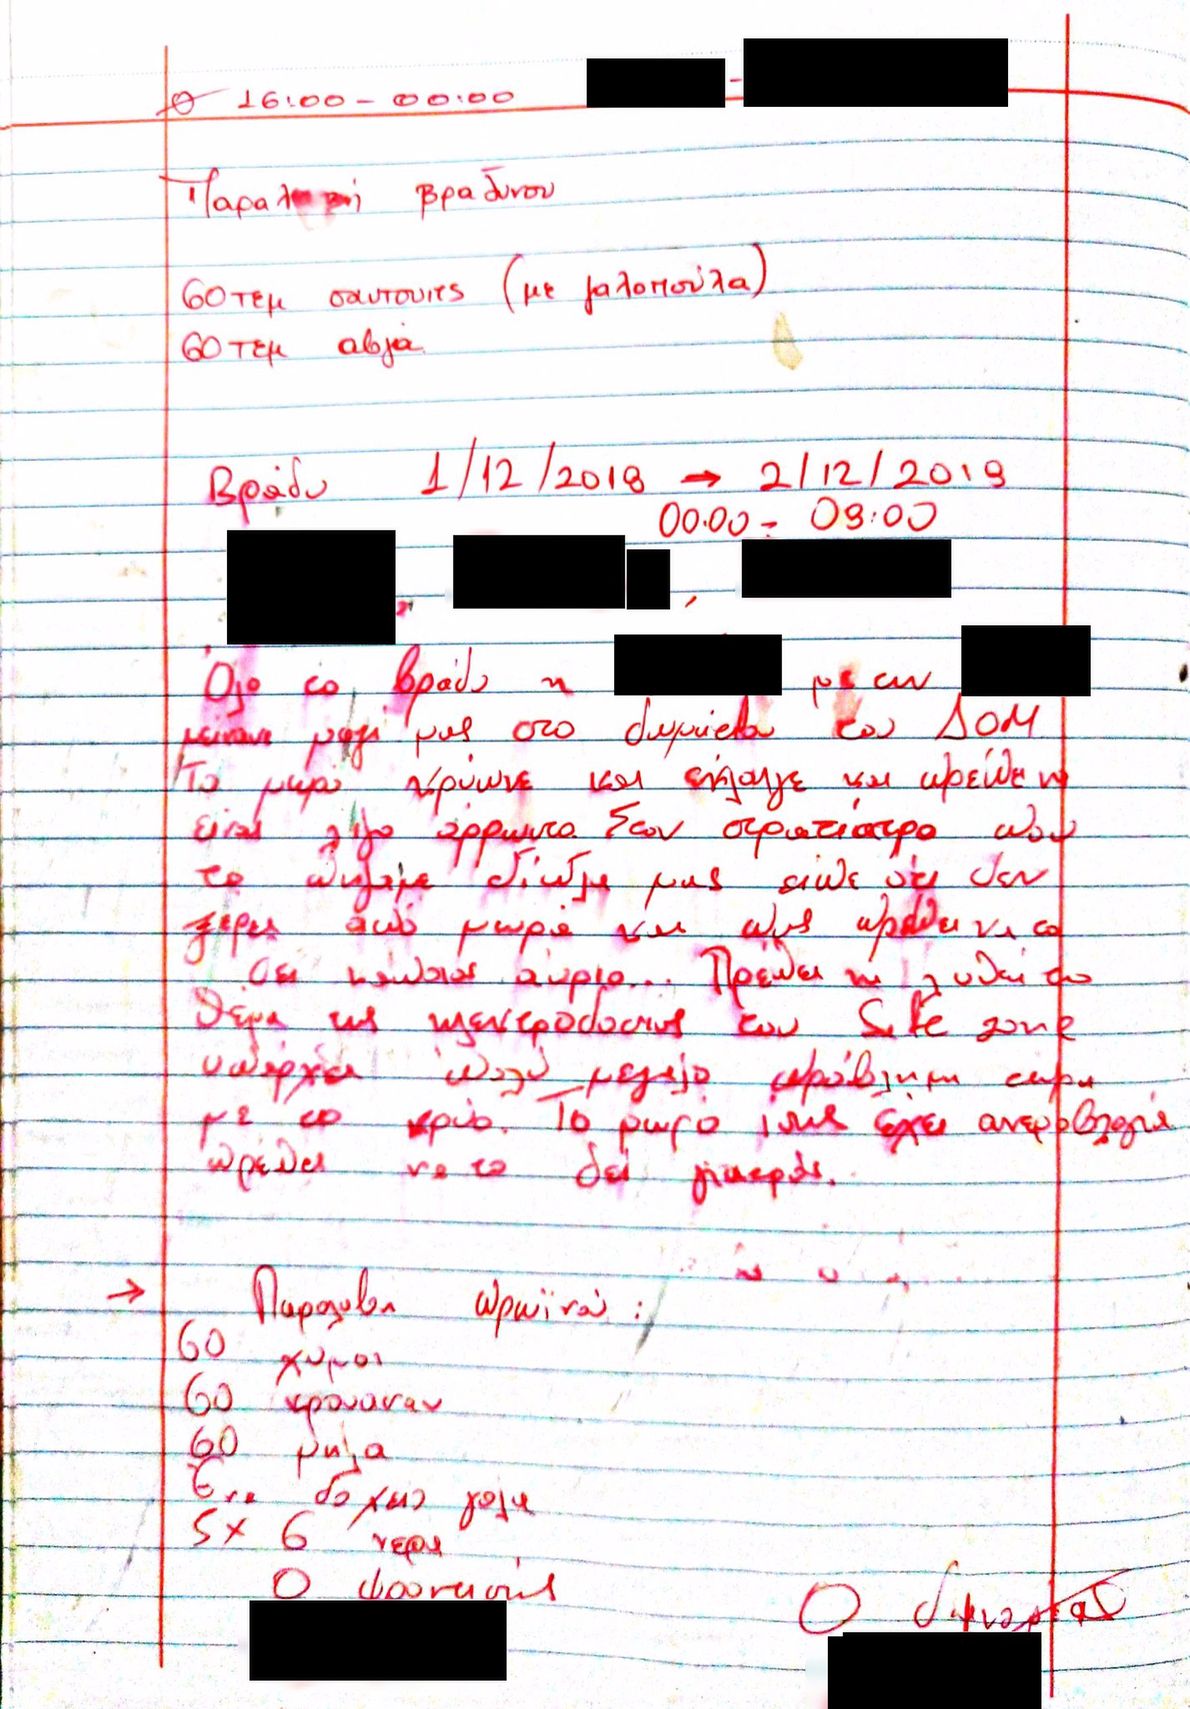 16:00 - 00:00 -
Παραλαβή βραδυνου
60 τεμ σαντουιτς (με γαλοπούλα)
60 τεμ αβγά
Βράδυ 1/12/2018 → 2/12/2018
00:00 - 08:00
Όλο το βράδυ η με την
μείναν μαζί μας στο δωμάτιο του ΔΟΜ
Το μωρό κρύωνε και έκλαιγε και πρέπει να
είναι λίγο άρρωστο. Στον στρατίατρο που
το πήγαμε δίπλα μας είπε ότι δεν
ξέρει από μωρά και πως πρέπει να το
δει κάποιος αύριο... Πρέπει να λυθεί το
θέμα της ηλεκτροδοσίας του Safe zone
υπάρχει πολύ μεγάλο πρόβλημα τώρα
με το κρύο. Το μωρό της έχει ανεμοβλογιά
πρέπει να το δει γιατρός.
→ Παραλαβη πρωϊνού :
60 χυμοι
60 κρουασαν
60 μηλα
δοχεια γαλα
5 x 6 νερα
Ο φροντιστής
Ο